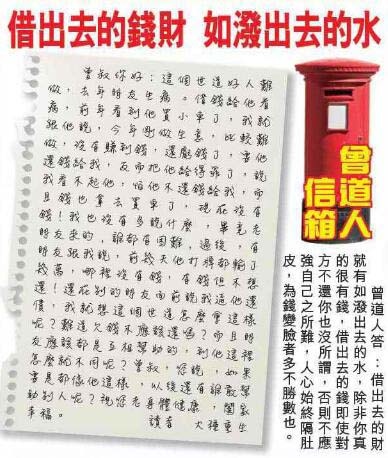 借出去的錢財 如潑出去的水
曾叔你好：這個世道好人難
做，去年朋友生病，借錢給他看
病，前年看到他買小車了，我就
跟他說，今年剛做生意，比較難
做，沒有賺到錢，還虧錢了，他
還錢給我，反而把他給得罪了，說
我看不起他，怕他不還錢給我，而
且錢也拿去買車了，現在沒有
錢！我也沒有多說什麼，畢竟老
朋友來的，誰都有困難，過後，有
朋友跟我說，前幾天他打牌都輸了
幾萬，哪裡沒有錢，有錢但不想
還！還在別的朋友面前說我逼他還
債，我就想這個世道怎麼會這樣
呢？難道欠錢不應該還嗎？而且朋
友應該都是互相幫助的，到他這裡
怎麼就不同呢？曾叔，您說，如果
是都像他這樣，以後還有誰敢幫
助別人呢？祝您老身體健康，闔家
幸福。
讀者 大埔生
曾道人
信箱
曾道人答：借出去的財
就有如潑出去的水，除非你真
的很有錢，借出去的錢即使對
方不還你也沒所謂，否則不應
強自己之所難，人心始終隔肚
皮，為錢變臉者多不勝數也。